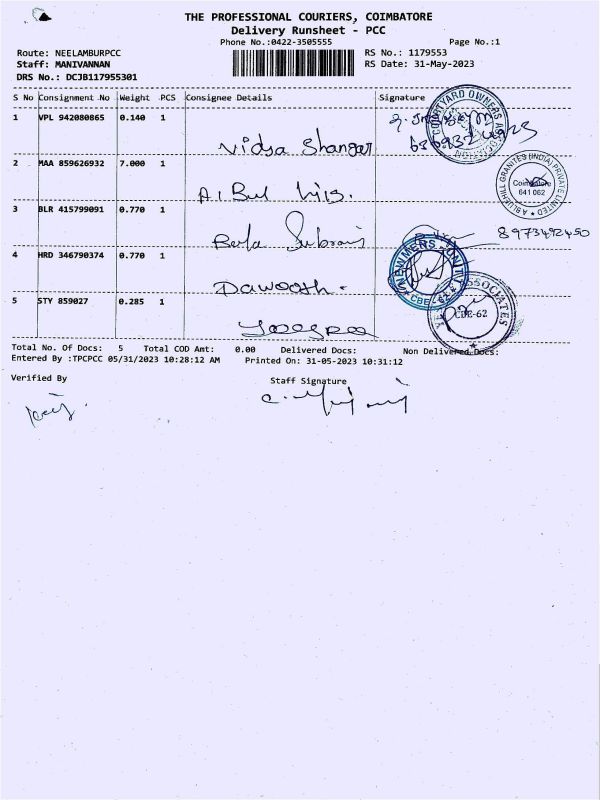 THE PROFESSIONAL COURIERS, COIMBATORE
Delivery Runsheet - PCC
Phone No.:0422-3505555 Page No.:1
Route: NEELAMBURPCC RS No.: 1179553
Staff: MANIVANNAN RS Date: 31-May-2023
DRS No.: DCJB117955301
S No Consignment No Weight PCS Consignee Details Signature
1 VPL 942080865 0.140 1
Vidya Shangar
COURTYARD OWNERS
2 MAA 859626932 7.000 1
A. Bul
BLUEHILL GRANITES (INDIA) PRIVATE LIMITED
Coimbatore
641 062
3 BLR 415799091 0.770 1
8973492450
4 HRD 346790374 0.770 1
Dawooth.
CBE-62
5 STY 859027 0.285 1
ASSOCIATES
CBE-62
Total No. Of Docs: 5 Total COD Amt: 0.00 Delivered Docs: Non Delivered Docs:
Entered By :TPCPCC 05/31/2023 10:28:12 AM Printed On: 31-05-2023 10:31:12
Verified By Staff Signature